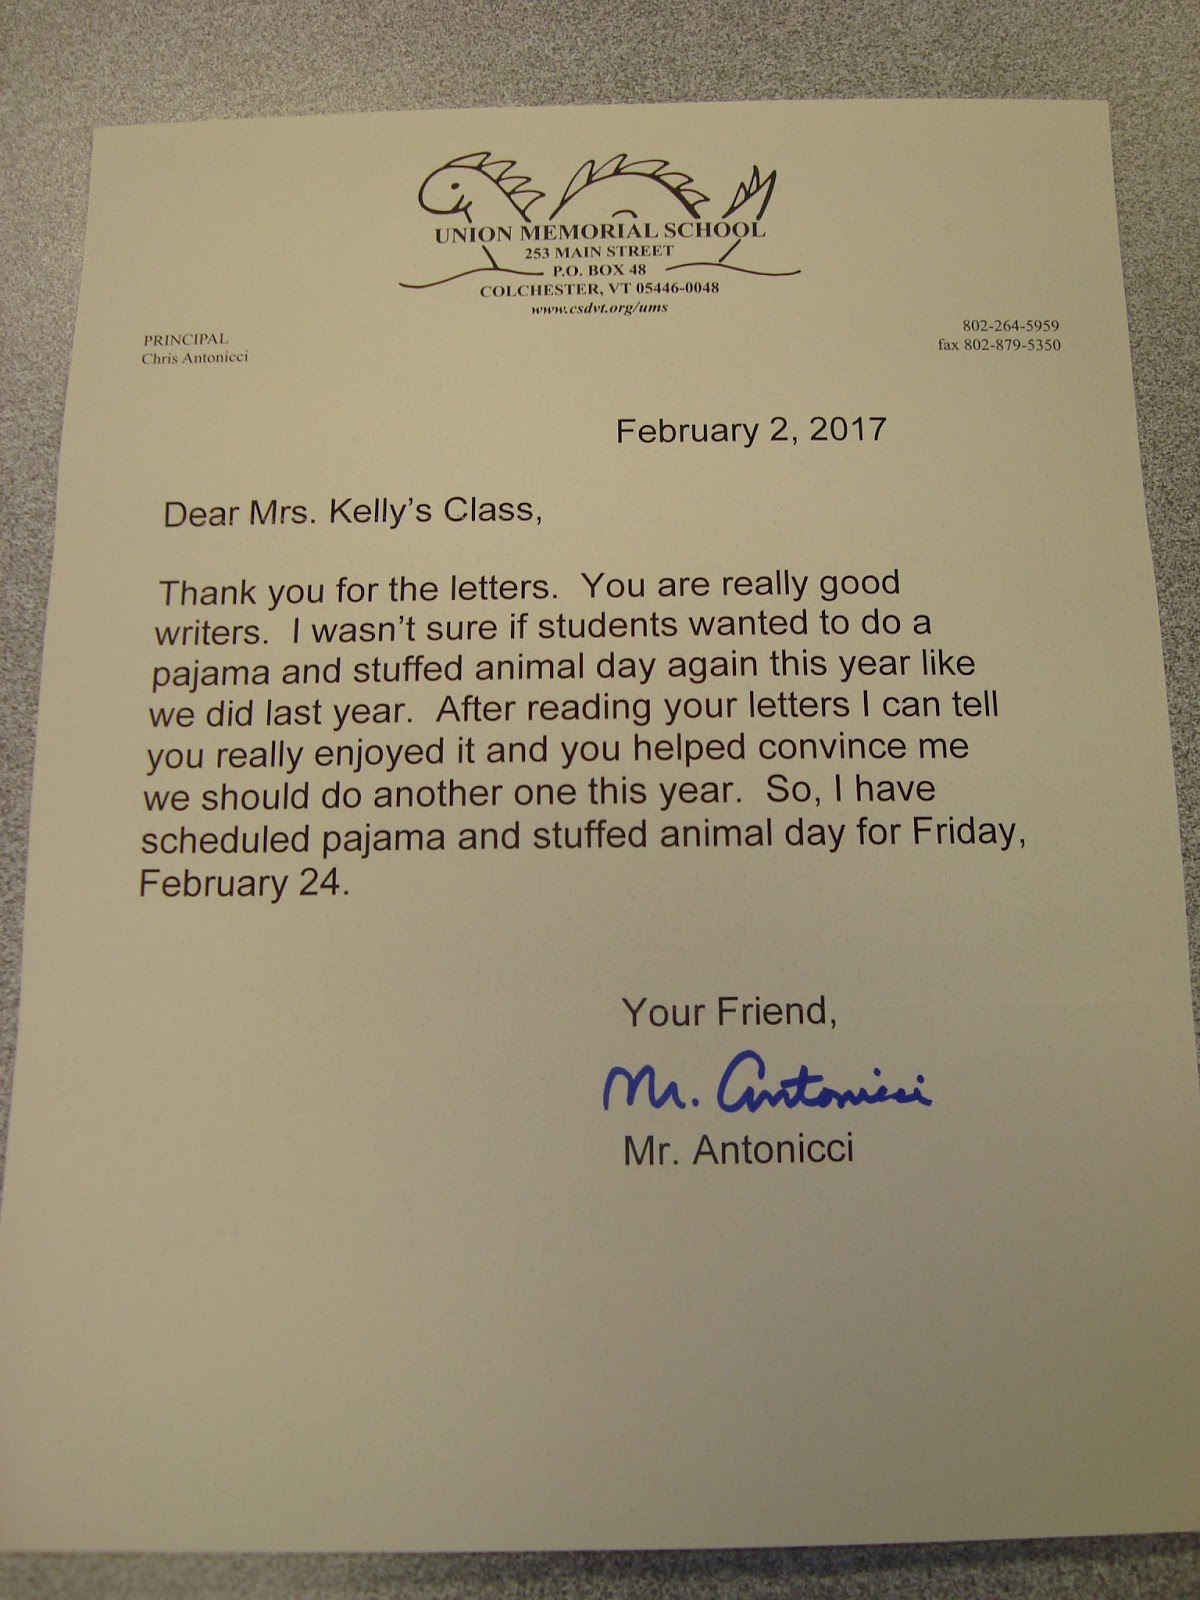 UNION MEMORIAL SCHOOL
253 MAIN STREET
P.O. BOX 48
COLCHESTER, VT 05446-0048
www.csdvt.org/ums
PRINCIPAL
Chris Antonicci
802-264-5959
fax 802-879-5350
February 2, 2017
Dear Mrs. Kelly's Class,
Thank you for the letters.  You are really good
writers.  I wasn't sure if students wanted to do a
pajama and stuffed animal day again this year like
we did last year.  After reading your letters I can tell
you really enjoyed it and you helped convince me
we should do another one this year.  So, I have
scheduled pajama and stuffed animal day for Friday,
February 24.
Your Friend,
Mr. Antonicci
Mr. Antonicci